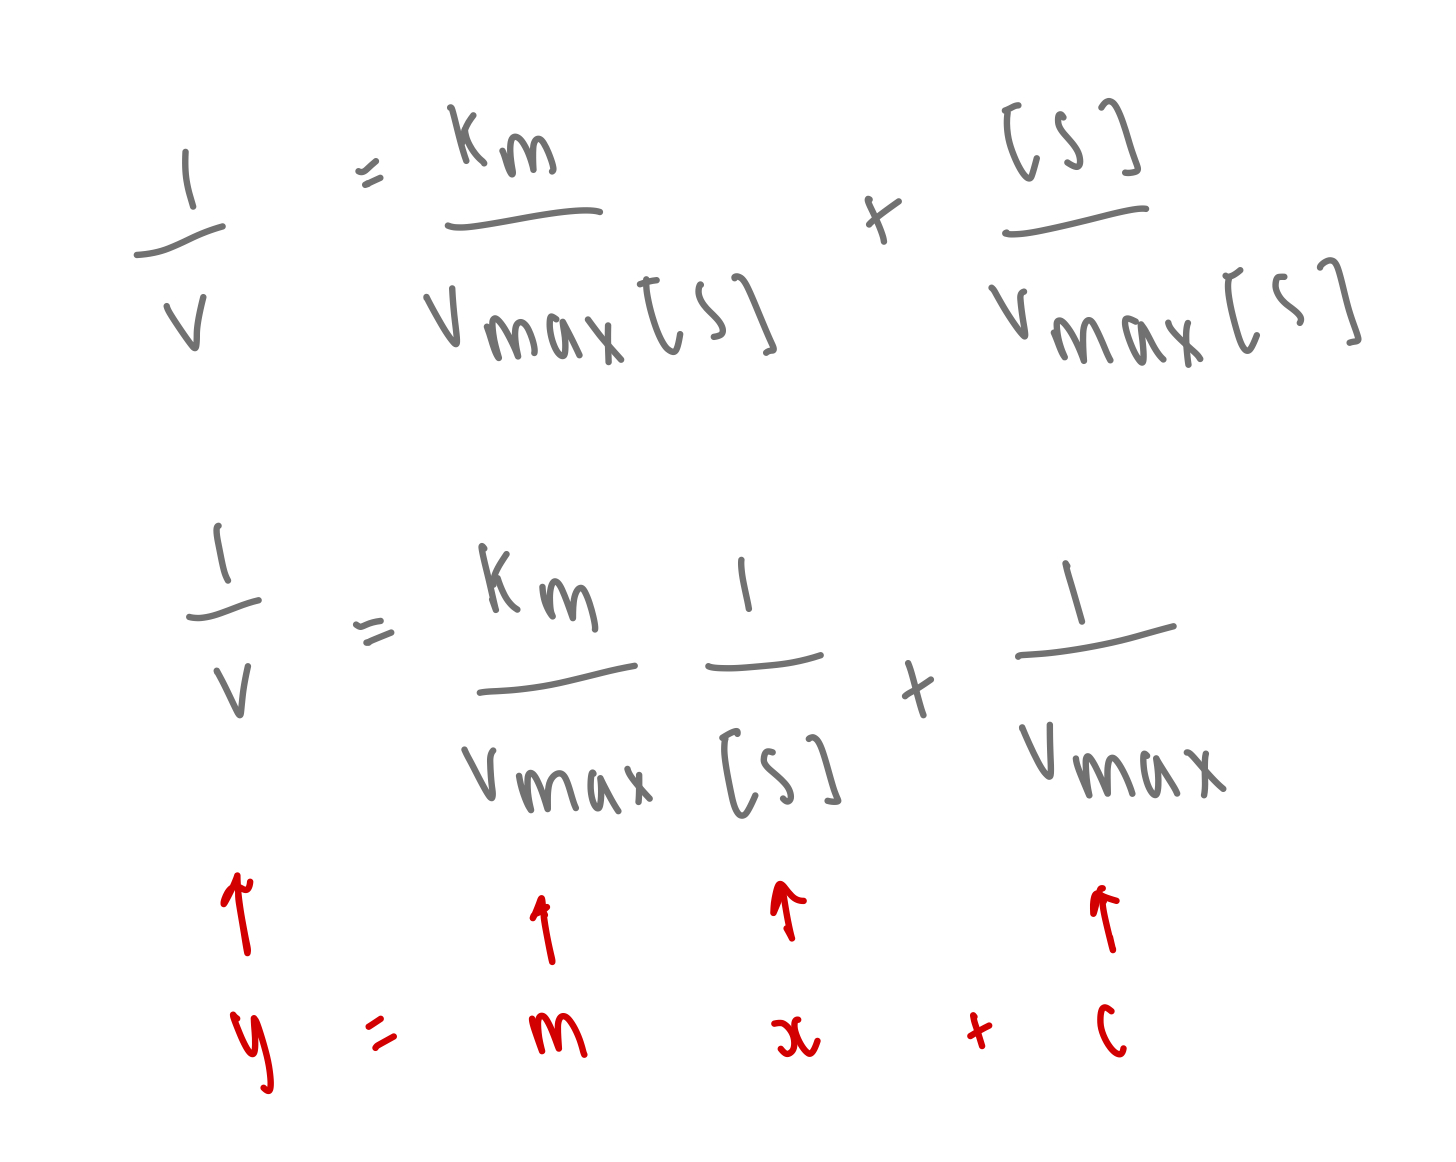 1/v = Km/Vmax[S] + [S]/Vmax[S]
1/v = Km/Vmax 1/[S] + 1/Vmax
↑ ↑ ↑ ↑
y = m x + c